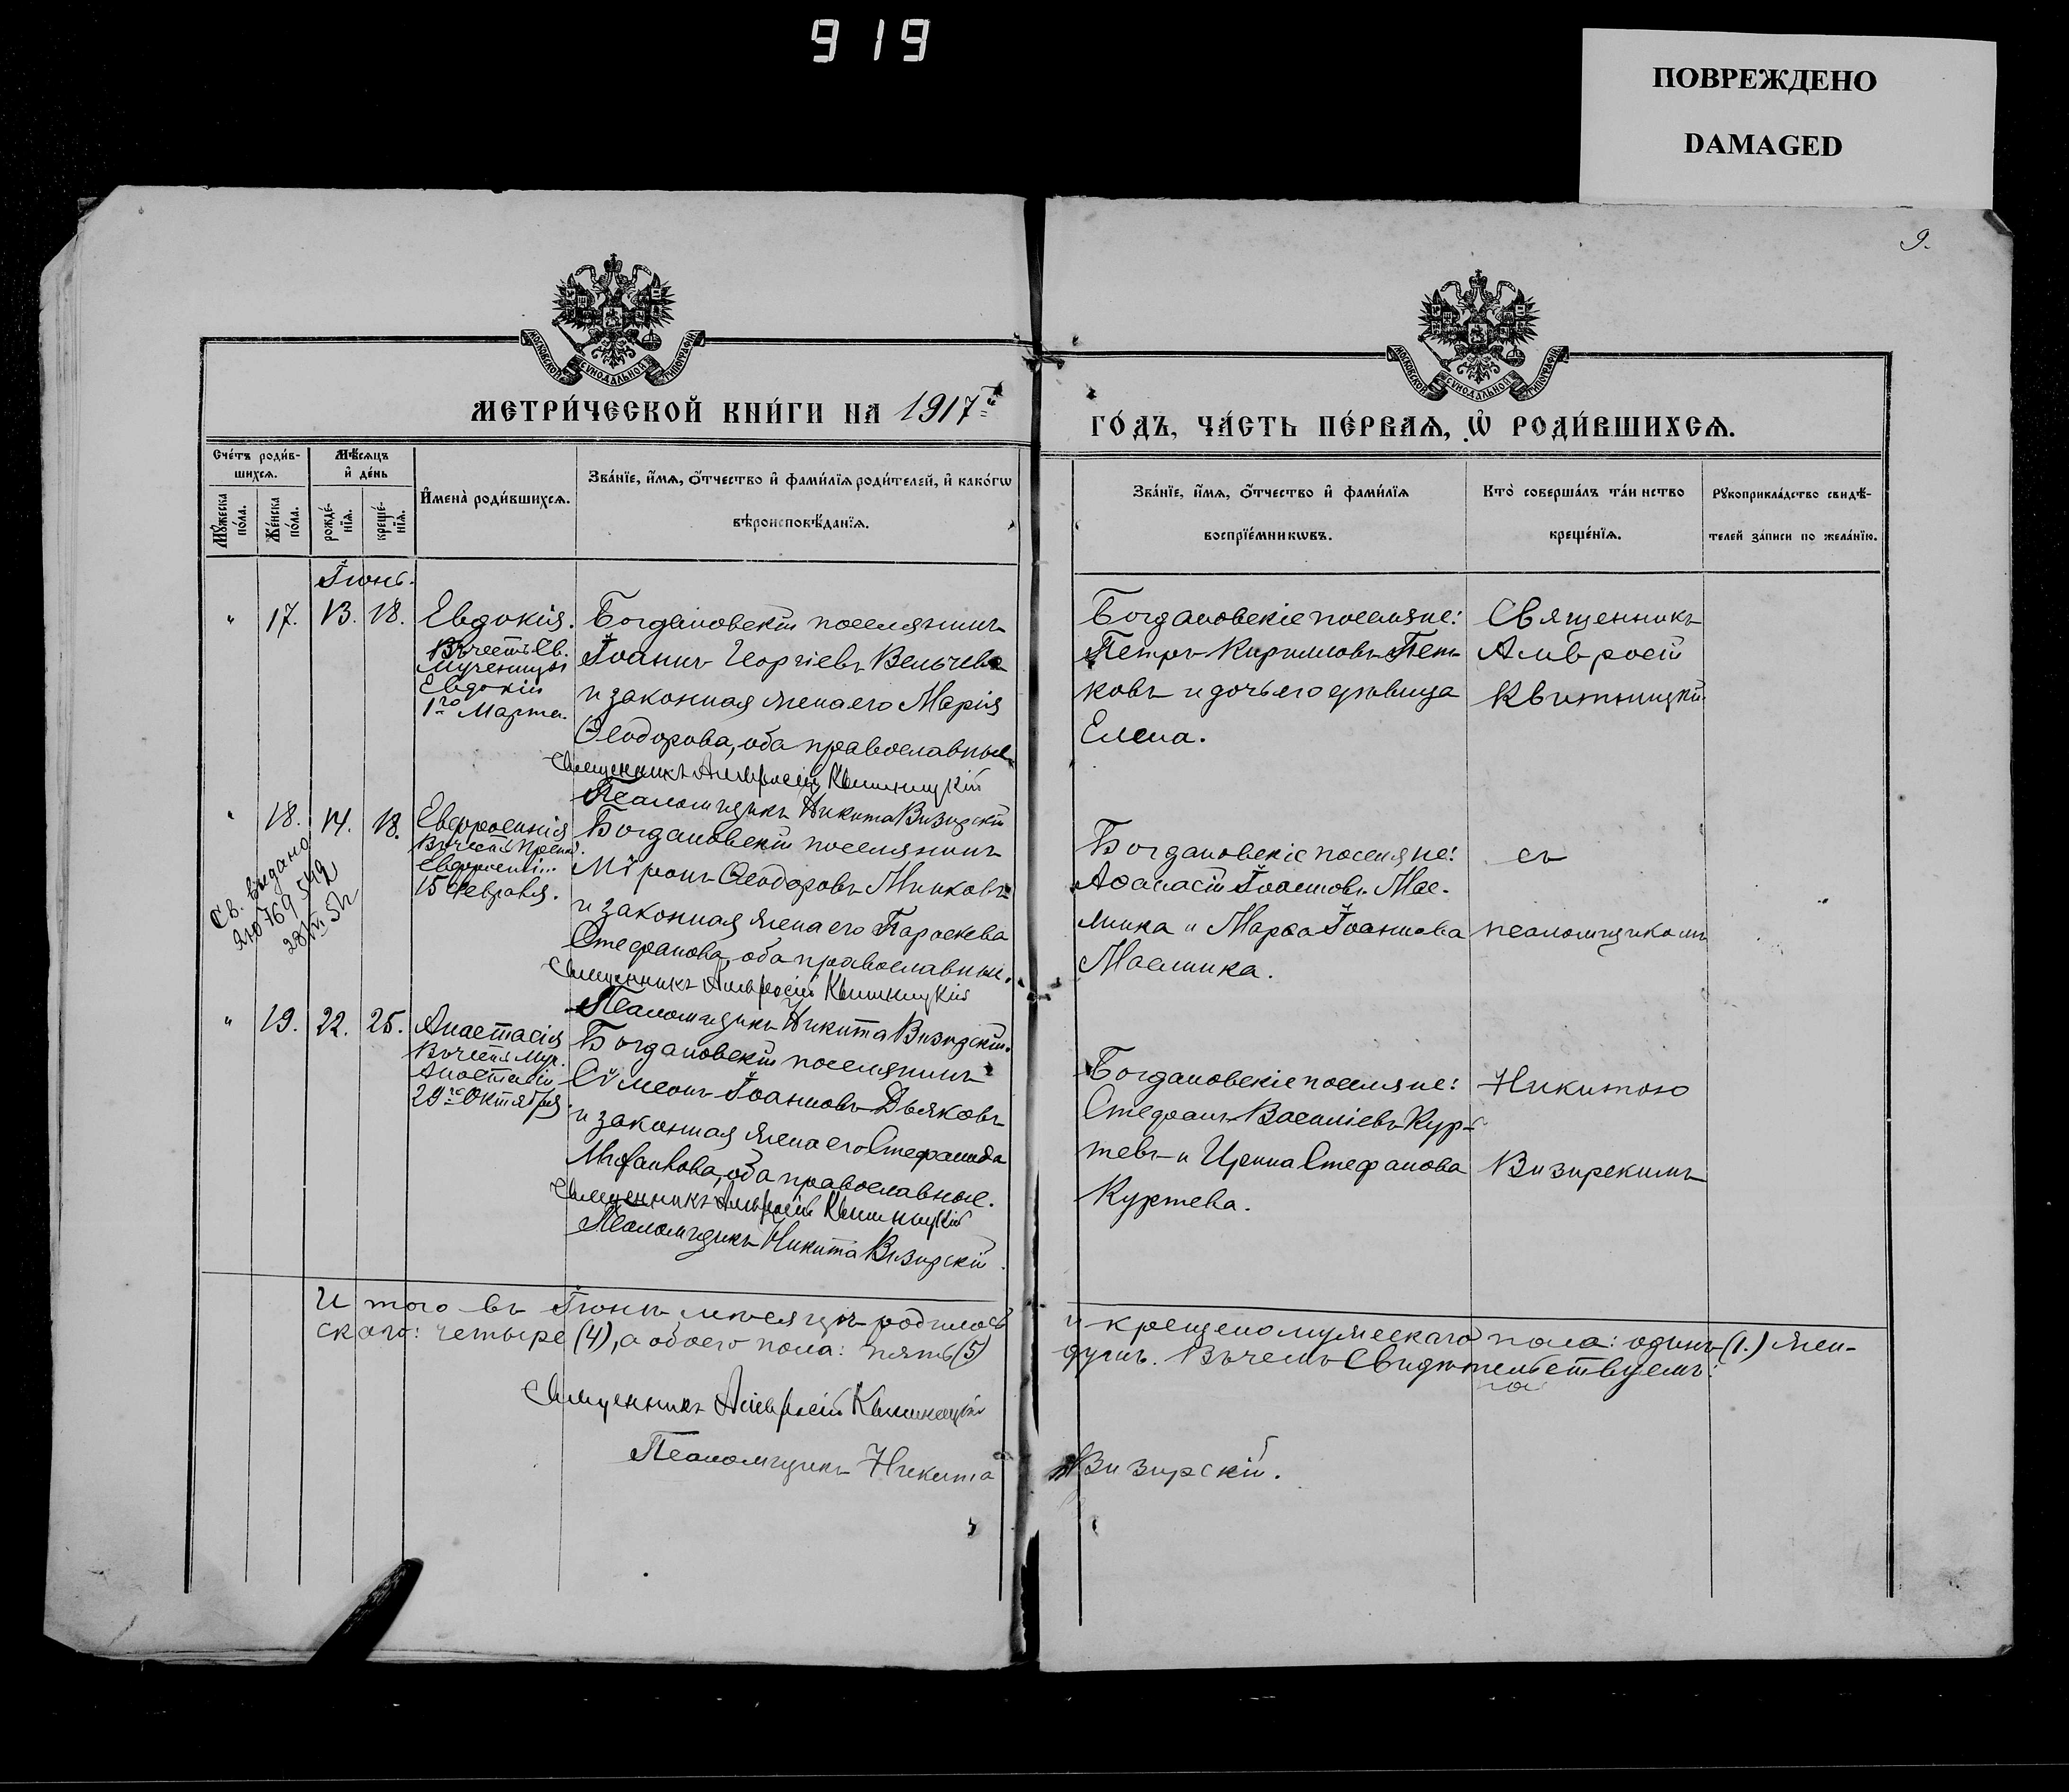 919
ПОВРЕЖДЕНО
DAMAGED
9.
МОСКОВСКОЙ СѴНОДАЛЬНОЙ ТИПОГРАФІИ
МОСКОВСКОЙ СѴНОДАЛЬНОЙ ТИПОГРАФІИ
МЕТРИ́ЧЕСКОЙ КНИ́ГИ НА 1917й
ГО́ДЪ, ЧА́СТЬ ПЕ́РВАѦ, Ѡ҆ РОДИ́ВШИХСѦ.
Сче́тъ роди́в-
шихсѧ.
Мꙋ́жеска по́ла.
Же́нска по́ла.
Мѣ́сѧцъ
и҆ де́нь
рожде́-
нїѧ.
креще́-
нїѧ.
И҆мена̀ роди́вшихсѧ.
Зва́нїе, и҆́мѧ, ѻ҆́тчество и҆ фами́лїѧ роди́телей, и҆ како́гѡ
вѣроисповѣ́данїѧ.
Зва́нїе, и҆́мѧ, ѻ҆́тчество и҆ фами́лїѧ
воспрїе́мникѡвъ.
Кто̀ соверша́лъ та́инство
креще́нїѧ.
Рꙋкоприкла́дство свидѣ́-
телей за́писи по жела́нїю.
Іюнь.
" 17. 13. 18.
Евдокія.
Въ честь Св.
Мученицы
Евдокіи
1го Марта.
Богдановскій поселянинъ
Іоаннъ Георгіевъ Вельчевъ
и законная жена его Марія
Ѳеодорова, оба православные.
Священникъ Амвросій Квитницкій
Псаломщикъ Никита Визирскій
Богдановскіе поселяне:
Петръ Кирилловъ Пет-
ковъ и дочь его дѣвица
Елена.
Священникъ
Амвросій
Квитницкій
" 18. 14. 18.
Св. видано
28/VII 52
Евфросинія
Въ честь Препод.
15 Февраля.
Богдановскій поселянинъ
Мѵронъ Ѳеодоровъ Минковъ
и законная жена его Параскева
Стефанова, оба православные.
Священникъ Амвросій Квитницкій
Псаломщикъ Никита Визирскій.
Богдановскіе поселяне:
Аѳанасій Іоанновъ Мас-
линка и Марѳа Іоаннова
Маслинка.
съ
псаломщикомъ
" 19. 22. 25.
Анастасія
Въ честь Муч.
Анастасіи
29го Октября.
Богдановскій поселянинъ
Сѵмеонъ Іоанновъ Дьяковъ
и законная жена его Стефанида
оба православные.
Священникъ Амвросій Квитницкій
Псаломщикъ Никита Визирскій
Богдановскіе поселяне:
Стефанъ Василіевъ Кур-
тевъ и Ирина Стефанова
Куртева.
Никитою
Визирскимъ
Итого въ Іюнѣ мѣсяцѣ родилось и крещено мужескаго пола: одинъ (1.) жен-
скаго: четыре (4), а обоего пола: пять (5) душъ. Въ чемъ Свидѣтельствуемъ:
Священникъ Амвросій Квитницкій
Псаломщикъ Никита Визирскій.